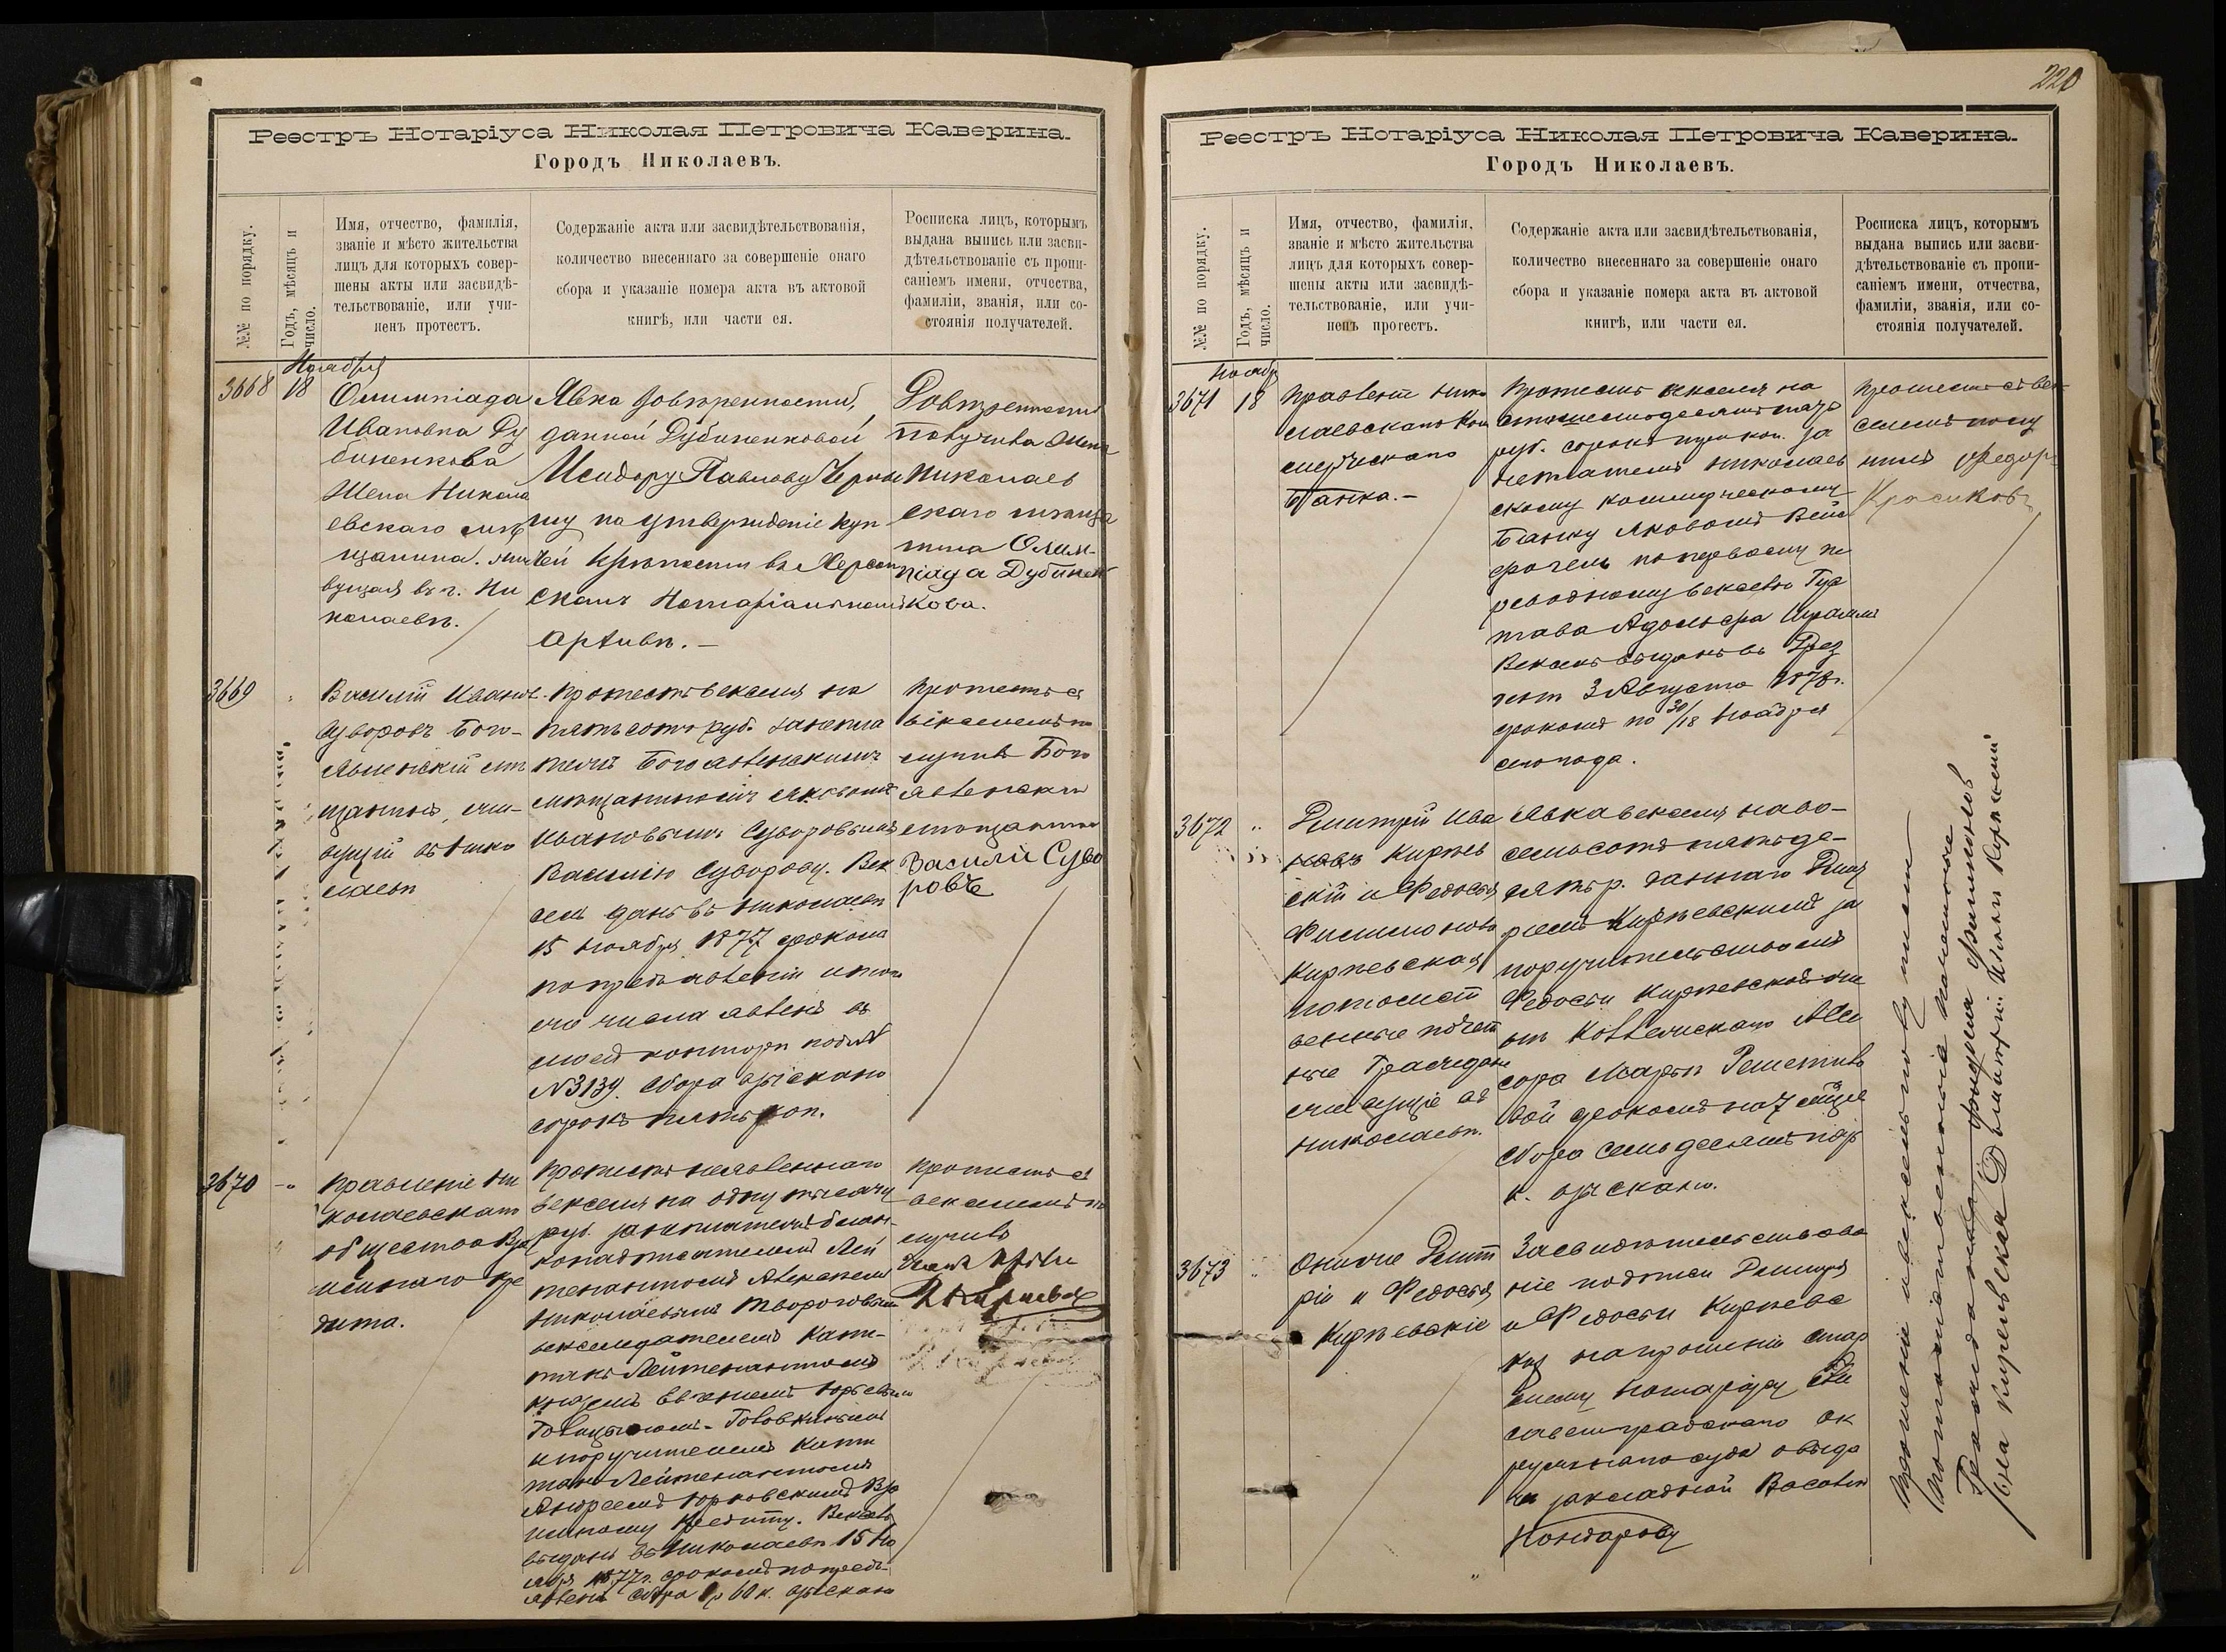 Реестръ Нотаріуса Николая Петровича Каверина.
Городъ Николаевъ.
№№ по порядку.
Годъ, мѣсяцъ и
число.
Имя, отчество, фамилія,
званіе и мѣсто жительства
лицъ для которыхъ совер-
шены акты или засвидѣ-
тельствованіе, или учи-
ненъ протестъ.
Содержаніе акта или засвидѣтельствованія,
количество внесеннаго за совершеніе онаго
сбора и указаніе номера акта въ актовой
книгѣ, или части ея.
Росписка лицъ, которымъ
выдана выпись или засви-
дѣтельствованіе съ пропи-
саніемъ имени, отчества,
фамиліи, званія, или со-
стоянія получателей.
Ноября
3668
18
Олимпіада
Ивановна Ду
биненкова
Жена Никола
евскаго мѣ
щанина. жи
вущая въ г. Ни
колаевѣ.
Явка довѣренности,
данной Дубиненковой
Исидору Павлову Черны
шу на утвержденіе куп
чей крѣпости въ Херсон
скомъ Нотаріальномъ
Архивѣ.—
Довѣренность
получила
Николаев
скаго мѣща
нина Олим-
піада Дубинен
кова.
3669
Василій Иванов
Суворовъ Бого-
явленскій мѣ
щанинъ, жи-
вущій въ Нико
лаевѣ
Протестъ векселя на
пятьсотъ руб. за непла
тежъ Богоявленскимъ
мѣщаниномъ
Ивановымъ Суворовымъ
Василію Суворову. Век
сель данъ въ Николаевѣ
15 Ноября 1877 срокомъ
по предъявленіи и того
же числа явленъ въ
моей конторѣ подъ
№3139. Сбора взыскано
сорокъ пять коп.
Протестъ съ
векселемъ по
лучилъ Бого
явленскій
мѣщанинъ
Василій Суво
ровъ
3670
Правленіе Ни
колаевскаго
общества Вза
имнаго Кре
дита.
Протестъ неявленнаго
векселя на одну тысячу
руб. за неплатежъ блан-
конадписателемъ Лей
тенантомъ Алексѣемъ
Николаевымъ Твороговымъ
векселедателемъ Капи-
танъ Лейтенантомъ
княземъ Евгеніемъ Юрьевымъ
Голицынымъ-Головкинымъ
и поручителемъ Капи
танъ Лейтенантомъ
Андреемъ Юрковскимъ Вза
имному Кредиту. Вексель
выданъ въ Николаевѣ 15 Но
ября 1877 г. срокомъ по предъ-
явленіи Сбора 1 р 60 к. взыскано
Протестъ съ
векселемъ по
лучилъ
220
Реестръ Нотаріуса Николая Петровича Каверина.
Городъ Николаевъ.
№№ по порядку.
Годъ, мѣсяцъ и
число.
Имя, отчество, фамилія,
званіе и мѣсто жительства
лицъ для которыхъ совер-
шены акты или засвидѣ-
тельствованіе, или учи-
ненъ протестъ.
Содержаніе акта или засвидѣтельствованія,
количество внесеннаго за совершеніе онаго
сбора и указаніе номера акта въ актовой
книгѣ, или части ея.
Росписка лицъ, которымъ
выдана выпись или засви-
дѣтельствованіе съ пропи-
саніемъ имени, отчества,
фамиліи, званія, или со-
стоянія получателей.
Ноябр
3671
18
Правленіе Нико
лаевскаго Ком
мерческаго
Банка.—
Протестъ векселя на
руб. сорокъ три коп. за
неплатежъ Николаев
скому коммерческому
Банку Яковомъ
по первому пе
реводному векселю Гус
тава Адольфа
Вексель выданъ въ Дрез
денѣ 3 Августа 1878 г.
срокомъ по 30/18 Ноября
сего года.
Протестъ съ век
селемъ полу
чилъ Федоръ
Красиковъ
3672
Дмитрій Ива
новъ Кирѣев
скій и Федосья
Филимоновна
Кирѣевская
потомст
венные почет
ные Граждане
живущіе въ
Николаевѣ.
Явка векселя на во-
семьсотъ пятьде-
сятъ р. даннаго Дмит
ріемъ Кирѣевскимъ за
поручительствомъ
Федосьи Кирѣевской же
нѣ Коллежскаго Асес
сора Марьи
вой срокомъ на 7 мѣсяц
Сбора семьдесятъ пять
к. взыскано.
Потомственные почетные
Гражданка
рѣевская Дмитрій Ивановъ Кирѣевскій
3673
Онные Дмит
рій и Федосья
Кирѣевскіе
Засвидѣтельствова
ніе подписи Дмитрія
и Федосьи Кирѣевс
кихъ на прошеніи Стар
шему Нотаріусу Ели
саветградскаго Ок
ружнаго суда о выда
чѣ закладной
Кондарову